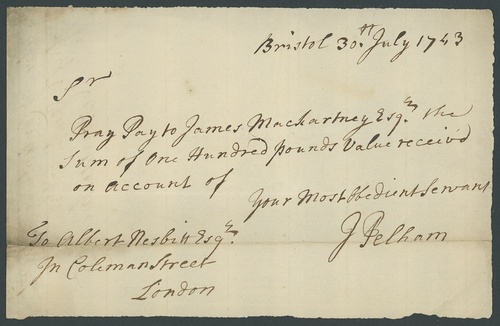 Bristol 30th July 1743
Sr
Pray Pay to James Mackartney Esqr the
Sum of One Hundred pounds Value receiv'd
on Account of
Your Most Obedient Servant
J Pelham
To Albert Nesbitt Esqr.
In Coliman Street
London